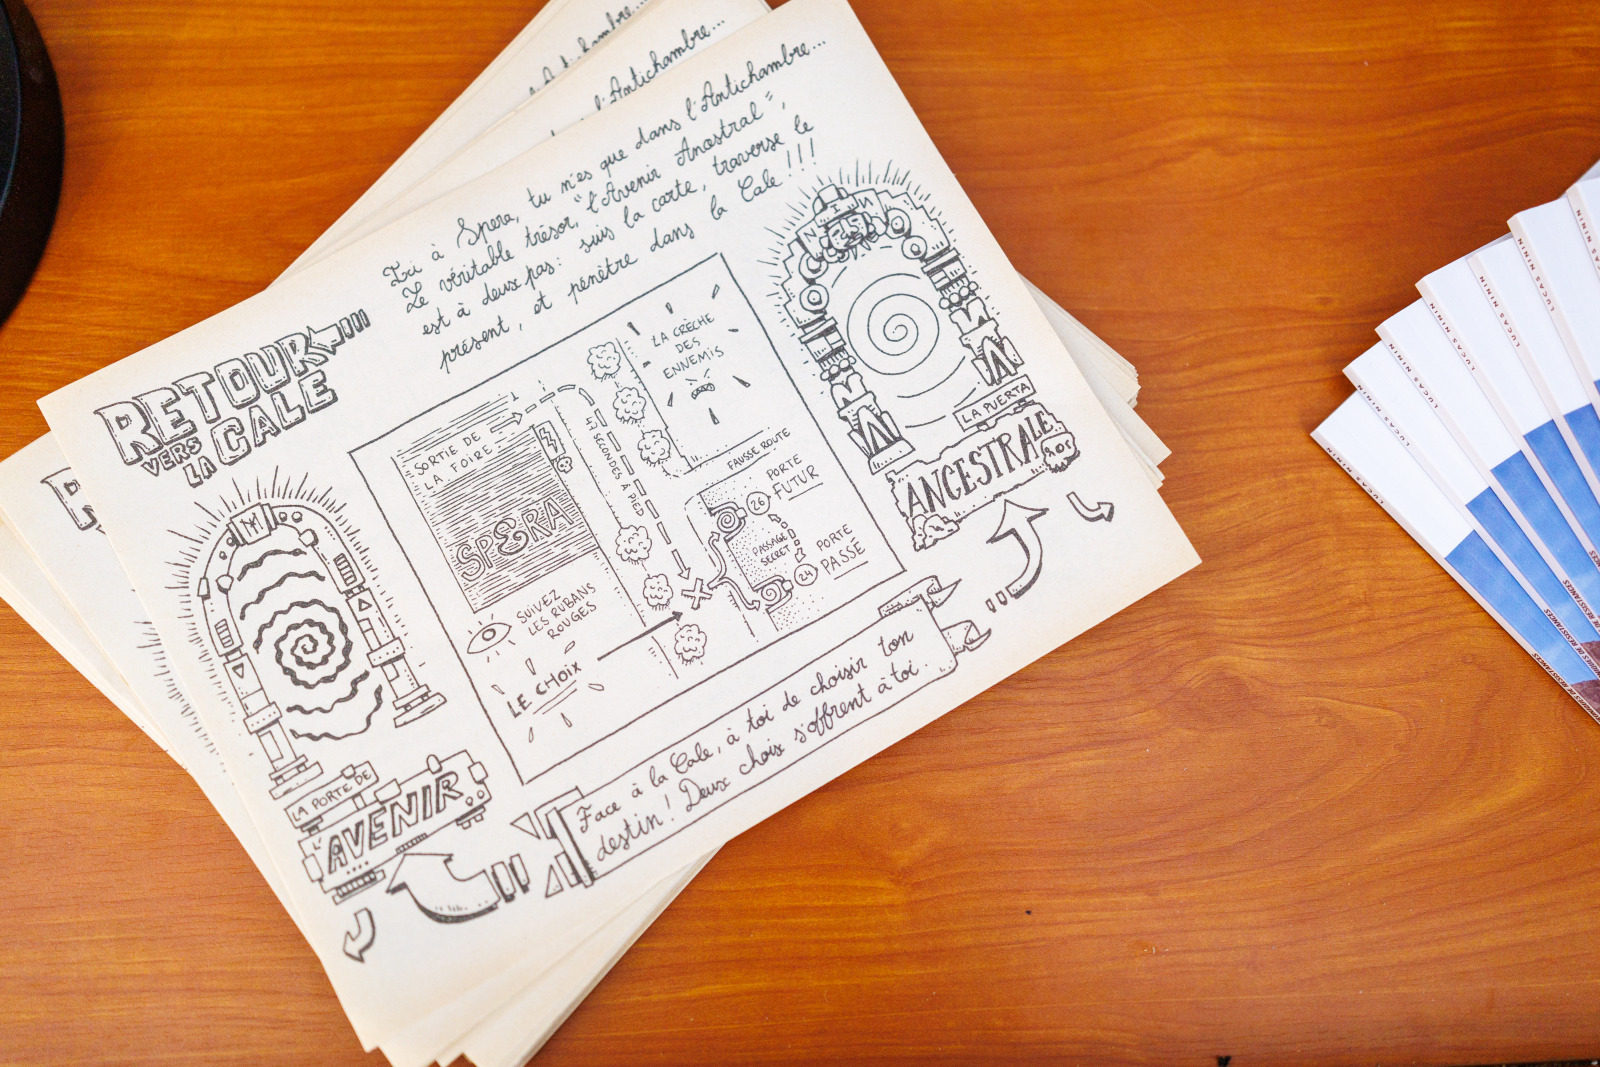 Ici à Spera, tu n'es que dans l'Antichambre...
Le véritable trésor, "l'Avenir Ancestral",
est à deux pas: suis la carte, traverse le
présent, et pénètre dans la Cale!!!
RETOUR
VERS
LA
CALE
SORTIE DE
LA FOIRE
SPERA
47 SECONDES À PIED
LA CRÈCHE
DES
ENNEMIS
FAUSSE ROUTE
PORTE
FUTUR
26
PASSAGE
SECRET
24
PORTE
PASSÉ
SUIVEZ
LES RUBANS
ROUGES
LE CHOIX
NIN
LA PUERTA
ANCESTRALE
LA PORTE DE
L'AVENIR
Face à la Cale, à toi de choisir ton
destin! Deux choix s'offrent à toi.
l'Antichambre...
LUCAS NININ
LUCAS NININ
LUCAS NININ
LUCAS NININ
LUCAS NININ
LUCAS NININ
DE RESISTANCES